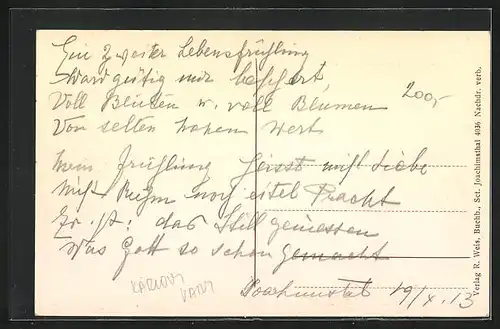 Ein zweiter Lebensfrühling
Ward gütig mir beschert,
Voll Blüten u. voll Blumen
Von selten hohem Wert
Mein Frühling heisst nicht Liebe
Nicht Ruhm noch eitel Pracht
Er ist: das Stillgeniessen
Was Gott so schön gemacht
Joachimstal 19/X. 13
200,-
KARLOVY
VARY
Verlag R. Weis, Buchh., Sct. Joachimsthal 4036 Nachdr. verb.